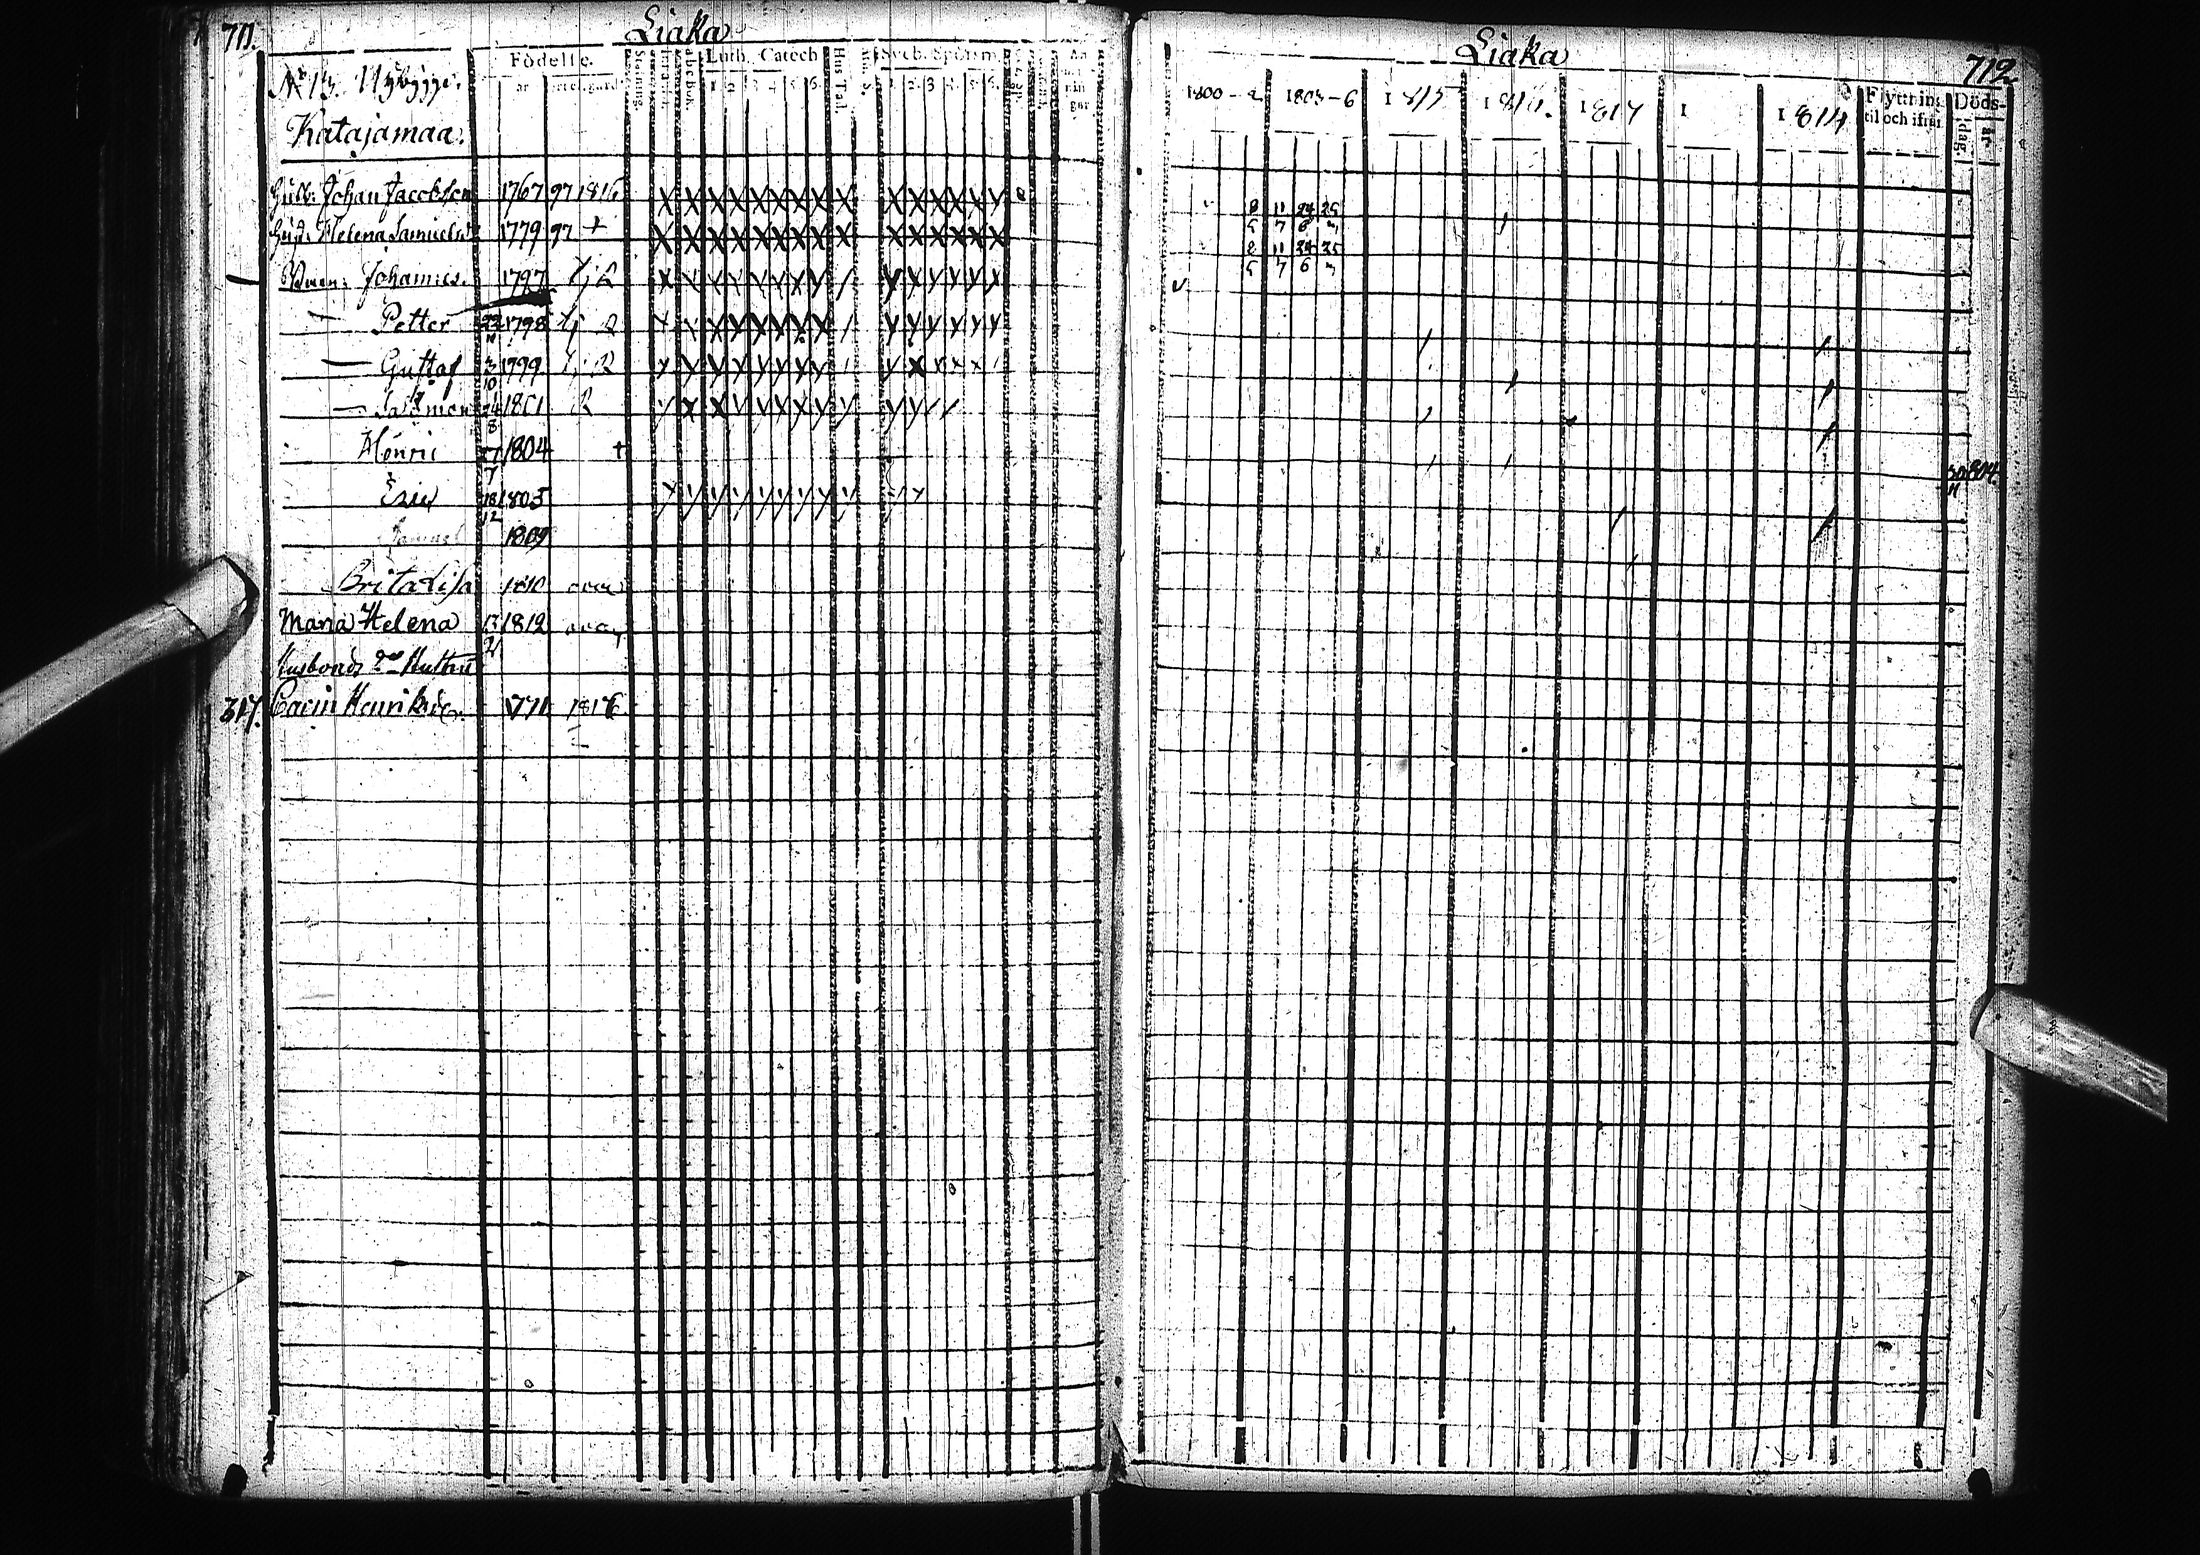 711.
Liaka
Födelse.
Luth. Catech
Hus Tafl.
Sveb. Spörsm.
1 2 3 4 5 6.
1. 2. 3 4. 5. 6.
No 13. Nybygge.
Katajamaa.
Johan Jacobsson 1767 97 1816
Helena Samuelsd. 1779 97 +
Johannes. 1797
Petter 1798
Gustaf 3/10 1799
Salomon 24/8 1801
Henric 27/7 1804 +
Eric 18/12 1805
Samuel 1809
Brita Lisa 1810
Maria Helena 13/21 1812
Husbonds 2dra Hustru
317. Carin Henriksdr. 1771 1816
Liaka
712
1800 - 2 1803-6 1815 1816. 1817 1 1814 Flyttning til och ifrån Döds- dag. år
8 11 24 25
5 7 6
8 11 24 25
5 7 6
30/11 804.